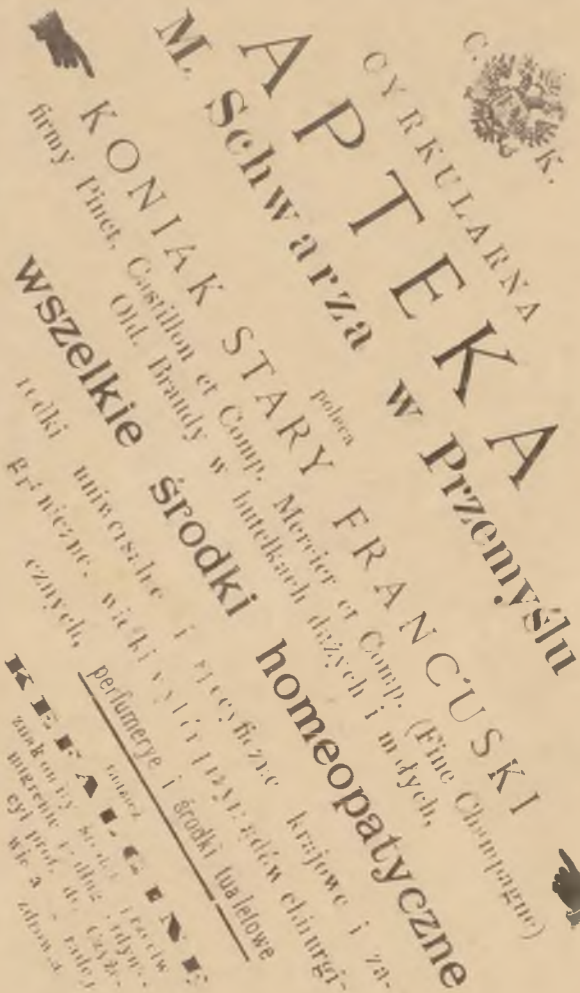 C. K.
CYRKULARNA
APTEKA
M. Schwarza w Przemyślu
poleca
KONIAK STARY FRANCUSKI
firmy Pinet, Castillon et Comp. Mercier et Comp. (Fine Champagne)
Old. Brandy w butelkach dużych i małych,
wszelkie środki homeopatyczne
rodki uniwersalne i specyficzne krajowe i za-
graniczne, wielki wybór przyrządów chirurgi-
cznych,
perfumerye i środki tualetowe
KEFALGINE
znakomity środek przeciw
migrenie według ordyn.
prof. dr.